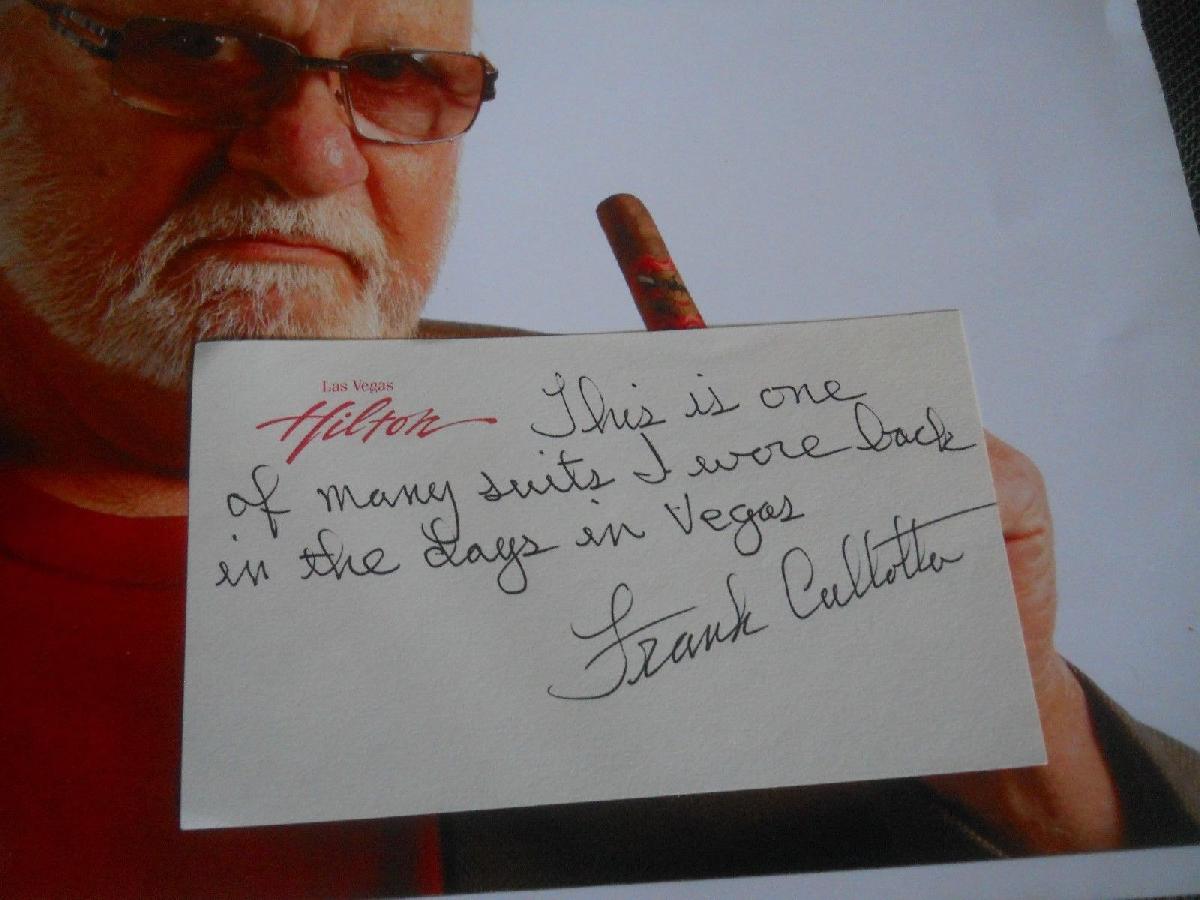 Las Vegas
Hilton
This is one
of many suits I wore back
in the days in Vegas
Frank Cullotta